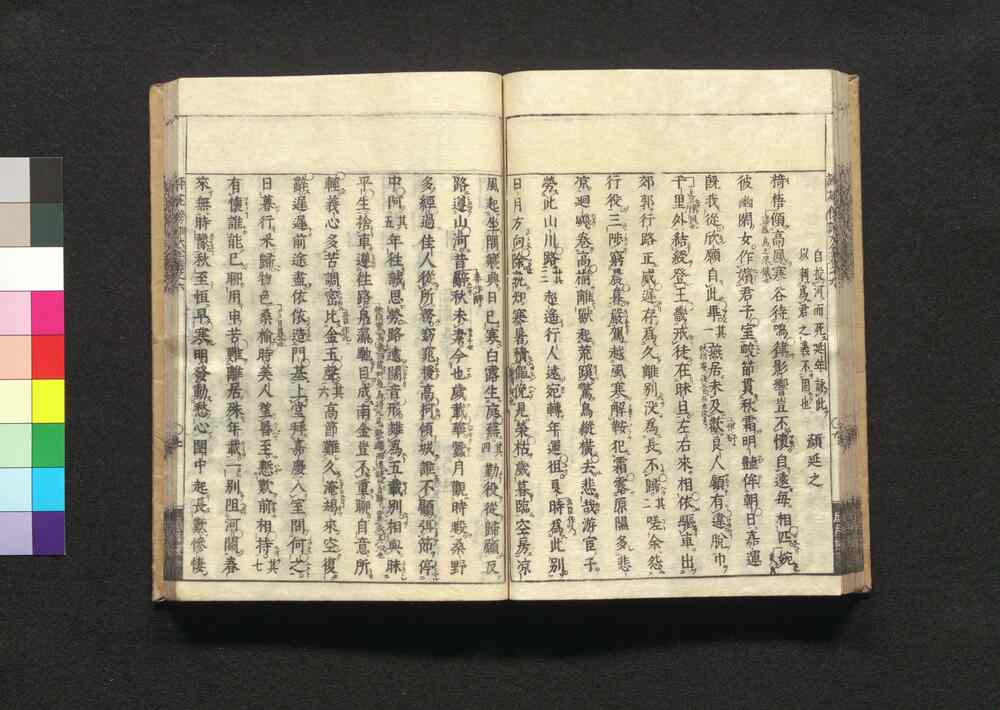 自投河而死延年詠此
以刺為君之義不固也
顔延之
椅梧傾高鳳寒谷待鳴律影響豈不懷自遠每相匹婉
彼幽閑女作嬪君子室峻節貫秋霜明豔侔朝日嘉運
既我從欣願自此畢其一燕居未及歡良人顧有違脫巾
千里外結綬登王畿戒徒在昧旦左右來相依驅車出
郊郭行路正威遲存為久離別沒為長不歸其二嗟余怨
行役三陟窮晨暮嚴駕越風寒解鞍犯霜露原隰多悲
涼迴飇卷高樹離獸起荒蹊驚鳥縱橫去悲哉游宦子
勞此山川路其三超遙行人遠宛轉年運徂良時為此別
日月方向除孰知寒暑積僶俛見榮枯歲暮臨空房涼
風起坐隅寢興日已寒白露生庭蕪其四勤役從歸願反
路遵山河昔辭秋未素今也歲載華蠶月觀時暇桑野
多經過佳人從所務窈窕援高柯傾城誰不顧弭節停
中阿其五年往誠思勞路遠闊音形雖為五載別相與昧
平生捨車遵往路鳧藻馳目成南金豈不重聊自意所
輕義心多苦調密比金玉聲其六高節難久淹朅來空復
辭遲遲前途盡依依造門基上堂拜嘉慶入室問何之
日暮行采歸物色桑榆時美人望昏至慙歎前相持其七
有懷誰能已聊用申苦難離居殊年載一別阻河關春
來無時豫秋至恒早寒明發動愁心閨中起長歎慘悽